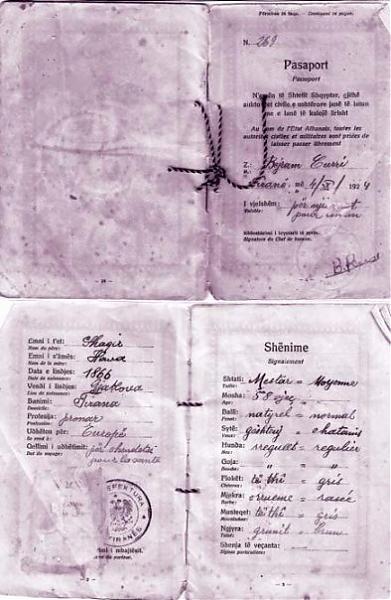 N. 269
Pasaport
Passeport
N'emën të Shtetit Shqyptar, gjithë
autoritet civile e ushtërore janë të lutun
me e lanë të kalojë lirisht
Au nom de l'Etat Albanais, toutes les
autorités civiles et militaires sont priées de
laisser passer librement
Z.: Bajram Curri
Tirana, më 4/XI/1924
I vjefshëm: për një vit
Valable: pour un an
Signature du Chef de bureau.
Emni i t'et: Shaqir
Nom du père:
Emni i s'âmës: Hava
Nom de la mère:
Data e lindjes: 1866
Date de naissance:
Vendi i lindjes: Gjakova
Lieu de naissance:
Banimi: Tirana
Domicile:
Profesija: pronar
Profession:
Udhëton për: Europë
Se rend à:
Qëllimi i udhëtimit: për shëndetsi
But du voyage: pour la santé
PREFEKTURA
TIRANËS
i mbajtësit.
du porteur.
Shënime
Signalement
Shtati: Mestar = Moyenne
Taille:
Mosha: 58 vjeç
Age:
Balli: natyrel = normal
Front:
Sytë: gështenj = chatains
Yeux:
Hunda: rregullët = regulier
Nez:
Goja: " "
Bouche:
Flokët: të thi = gris
Mjekra: e rrueme = rasée
Barbe:
Musteqet: të thi = gris
Moustaches:
Ngjyra: grunit = brun
Shenja të veçanta:
Signes particuliers: